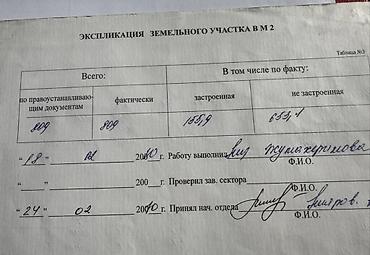 ЭКСПЛИКАЦИЯ ЗЕМЕЛЬНОГО УЧАСТКА В М 2
Таблица №3
Всего: В том числе по факту:
по правоустанавливаю-
щим документам фактически застроенная не застроенная
809 809 155,9 653,1
"18" 02 2010 г. Работу выполнил
Ф.И.О.
" " 200 г. Проверил зав. сектора
Ф.И.О.
"24" 02 2010 г. Принял нач. отдела
Ф.И.О.